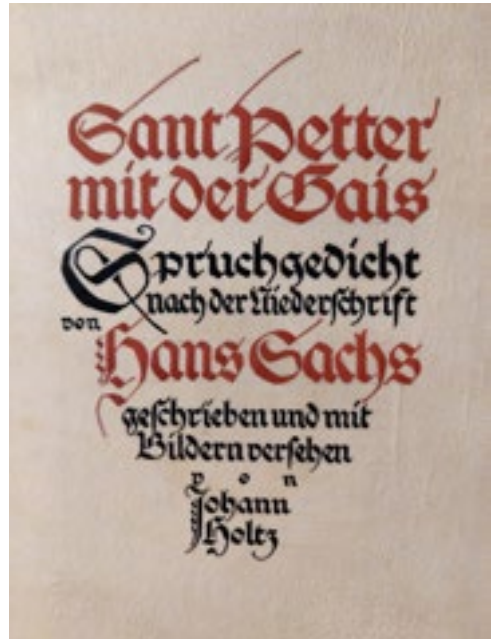 Sant Petter
mit der Gais
Spruchgedicht
nach der Niederschrift
von
Hans Sachs
geschrieben und mit
Bildern versehen
von
Johann
Holtz